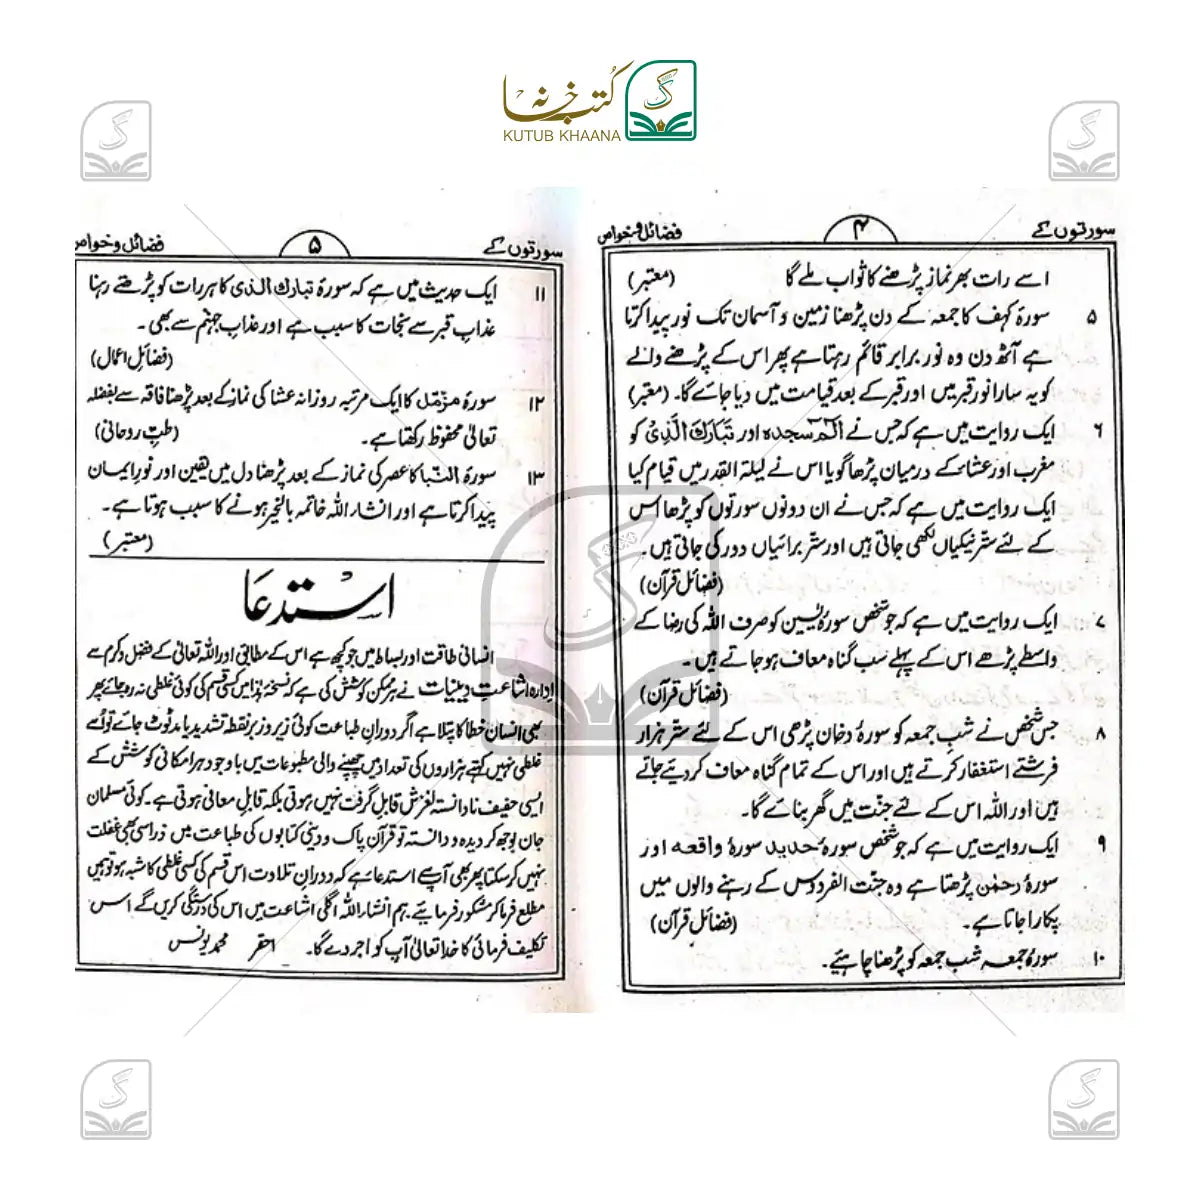 کتب خانہ
KUTUB KHAANA
سورتوں کے ۴ فضائل و خواص
اسے رات بھر نماز پڑھنے کا ثواب ملے گا (معتبر)
۵ سورۂ کہف کا جمعہ کے دن پڑھنا زمین و آسمان تک نور پیدا کرتا
ہے آٹھ دن وہ نور برابر قائم رہتا ہے پھر اس کے پڑھنے والے
کو یہ سارا نور قبر میں اور قبر کے بعد قیامت میں دیا جائے گا۔ (معتبر)
۶ ایک روایت میں ہے کہ جس نے الٓمٓ سجدہ اور تَبَارَكَ الَّذِیْ کو
مغرب اور عشاء کے درمیان پڑھا گویا اس نے لیلۃ القدر میں قیام کیا
ایک روایت میں ہے کہ جس نے ان دونوں سورتوں کو پڑھا اس
کے لئے ستر نیکیاں لکھی جاتی ہیں اور ستر برائیاں دور کی جاتی ہیں۔
(فضائل قرآن)
۷ ایک روایت میں ہے کہ جو شخص سورۂ یٰسین کو صرف اللہ کی رضا کے
واسطے پڑھے اس کے پہلے سب گناہ معاف ہو جاتے ہیں۔
(فضائل قرآن)
۸ جس شخص نے شب جمعہ کو سورۂ دخان پڑھی اس کے لئے ستر ہزار
فرشتے استغفار کرتے ہیں اور اس کے تمام گناہ معاف کر دیئے جاتے
ہیں اور اللہ اس کے لئے جنّت میں گھر بنائے گا۔
۹ ایک روایت میں ہے کہ جو شخص سورۂ حدید سورۂ واقعہ اور
سورۂ رحمٰن پڑھتا ہے وہ جنّت الفردوس کے رہنے والوں میں
پکارا جاتا ہے۔ (فضائل قرآن)
۱۰ سورۂ جمعہ شب جمعہ کو پڑھنا چاہئیے۔
سورتوں کے ۵ فضائل و خواص
۱۱ ایک حدیث میں ہے کہ سورۂ تبارك الذی کا ہر رات کو پڑھتے رہنا
عذابِ قبر سے نجات کا سبب ہے اور عذابِ جہنم سے بھی۔
(فضائل اعمال)
۱۲ سورۂ مزمّل کا ایک مرتبہ روزانہ عشا کی نماز کے بعد پڑھنا فاقہ سے بفضلہ
تعالیٰ محفوظ رکھتا ہے۔ (طبّ روحانی)
۱۳ سورۃ النّبا کا عصر کی نماز کے بعد پڑھنا دل میں یقین اور نورِ ایمان
پیدا کرتا ہے اور انشار اللہ خاتمہ بالخیر ہونے کا سبب ہوتا ہے۔
(معتبر)
استدعا
انسانی طاقت اور بساط میں جو کچھ ہے اس کے مطابق اور اللہ تعالیٰ کے فضل و کرم سے
ادارہ اشاعتِ دینیات نے ہر ممکن کوشش کی ہے کہ نسخۂ ہٰذا میں کسی قسم کی کوئی غلطی نہ رہ جائے پھر
بھی انسان خطا کا پتلا ہے اگر دورانِ طباعت کوئی زیر و زبر نقطہ تشدید یا مد ٹوٹ جائے تو اُسے
غلطی نہیں کہتے ہزاروں کی تعداد میں چھپنے والی مطبوعات میں باوجود ہر امکانی کوشش کے
ایسی خفیف نا دانستہ لغزش قابلِ گرفت نہیں ہوتی بلکہ قابلِ معافی ہوتی ہے۔ کوئی مسلمان
جان بوجھ کر دیدہ و دانستہ تو قرآن پاک و دینی کتابوں کی طباعت میں ذرا سی بھی غفلت
نہیں کر سکتا پھر بھی آپ سے استدعا ہے کہ دورانِ تلاوت اس قسم کی کسی غلطی کا شبہ ہو تو ہمیں
مطلع فرما کر مشکور فرمایئے۔ ہم انشار اللہ اگلی اشاعت میں اس کی درستگی کریں گے اس
تکلیف فرمائی کا خدا تعالیٰ آپ کو اجر دے گا۔ احقر محمد یونس